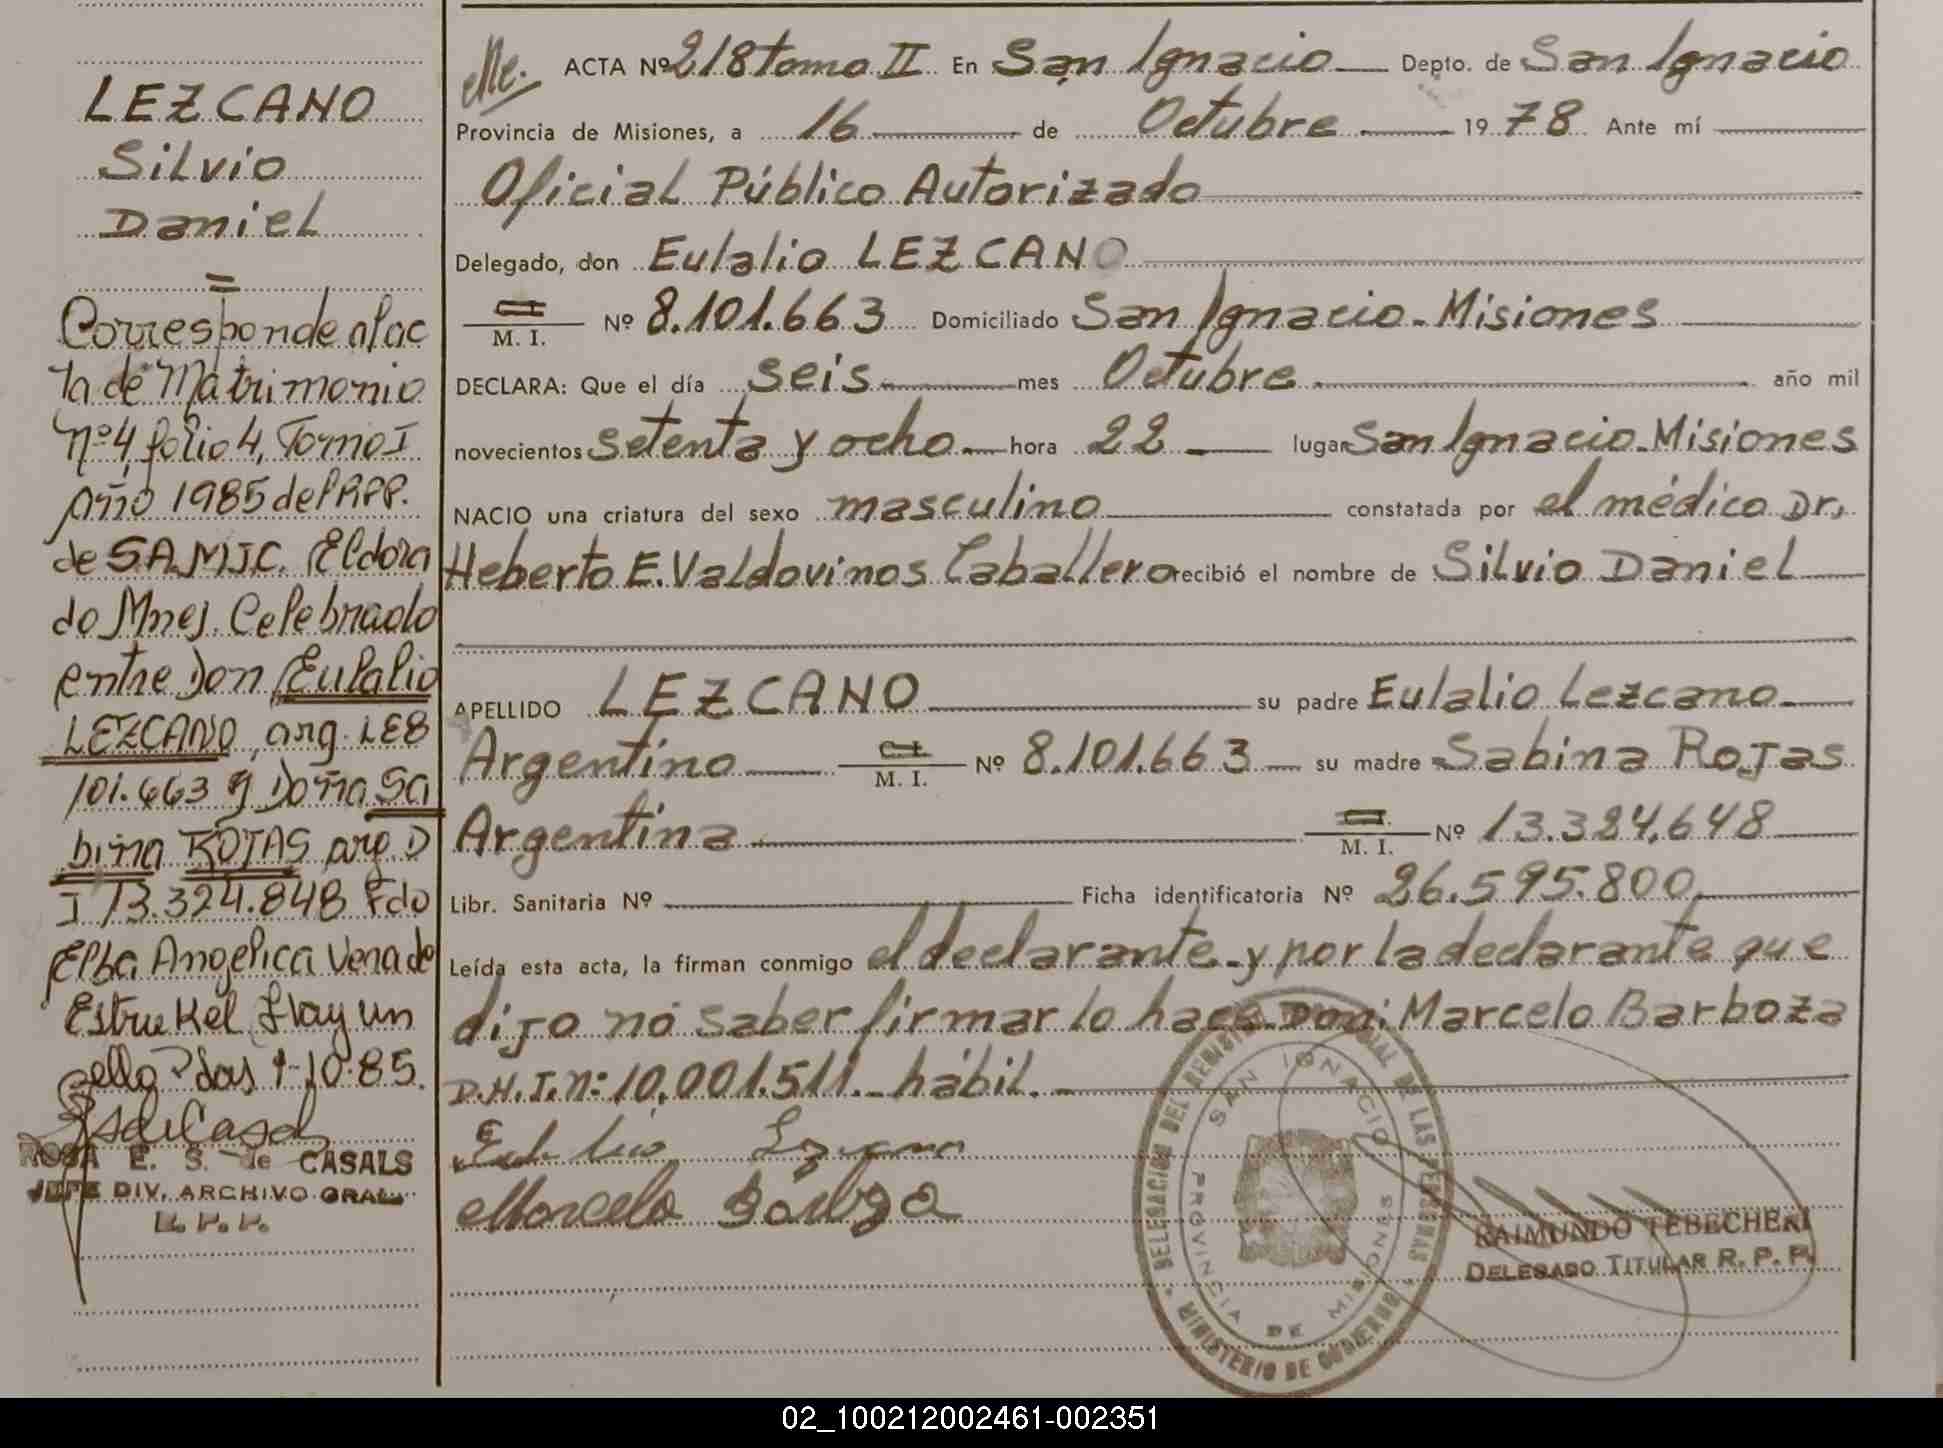 LEZCANO
Silvio
Daniel
=
Corresponde al ac
ta de Matrimonio
Nº 4, folio 4, Tomo I
Año 1985 del RPP.
de SAMIC. Eldora
do Mnes. Celebrado
entre Don Eulalio
LEZCANO, arg. LE 8
101.663 y Doña Sa
bina ROJAS arg. D
I 13.324.848 Fdo
Elba Angelica Vera de
Estrukel Hay un
sello Pdas 1-10-85.
ROSA E. S. de CASALS
JEFE DIV. ARCHIVO GRAL.
R. P. P.
ACTA Nº 218 tomo II En San Ignacio Depto. de San Ignacio
Provincia de Misiones, a 16 de Octubre 19 78 Ante mí
Oficial Público Autorizado
Delegado, don Eulalio LEZCANO
M. I. Nº 8.101.663 Domiciliado San Ignacio - Misiones
DECLARA: Que el día seis mes Octubre año mil
novecientos setenta y ocho hora 22 lugar San Ignacio - Misiones
NACIO una criatura del sexo masculino constatada por el médico Dr.
Heberto E. Valdovinos Caballero recibió el nombre de Silvio Daniel
APELLIDO LEZCANO su padre Eulalio Lezcano
Argentino C.I. M. I. Nº 8.101.663 su madre Sabina Rojas
Argentina M. I. Nº 13.324.648
Libr. Sanitaria Nº Ficha identificatoria Nº 26.595.800
Leída esta acta, la firman conmigo el declarante - y por la declarante que
dijo no saber firmar lo hace Don: Marcelo Barboza
D.N.I. Nº: 10.001.511. hábil.
Eulalio Lezcano
Marcelo Barboza
DELEGACION DEL REGISTRO PROVINCIAL DE LAS PERSONAS
SAN IGNACIO
PROVINCIA DE MISIONES
MINISTERIO DE GOBIERNO
RAIMUNDO TEBECHERI
DELEGADO TITULAR R. P. P.
02_100212002461-002351